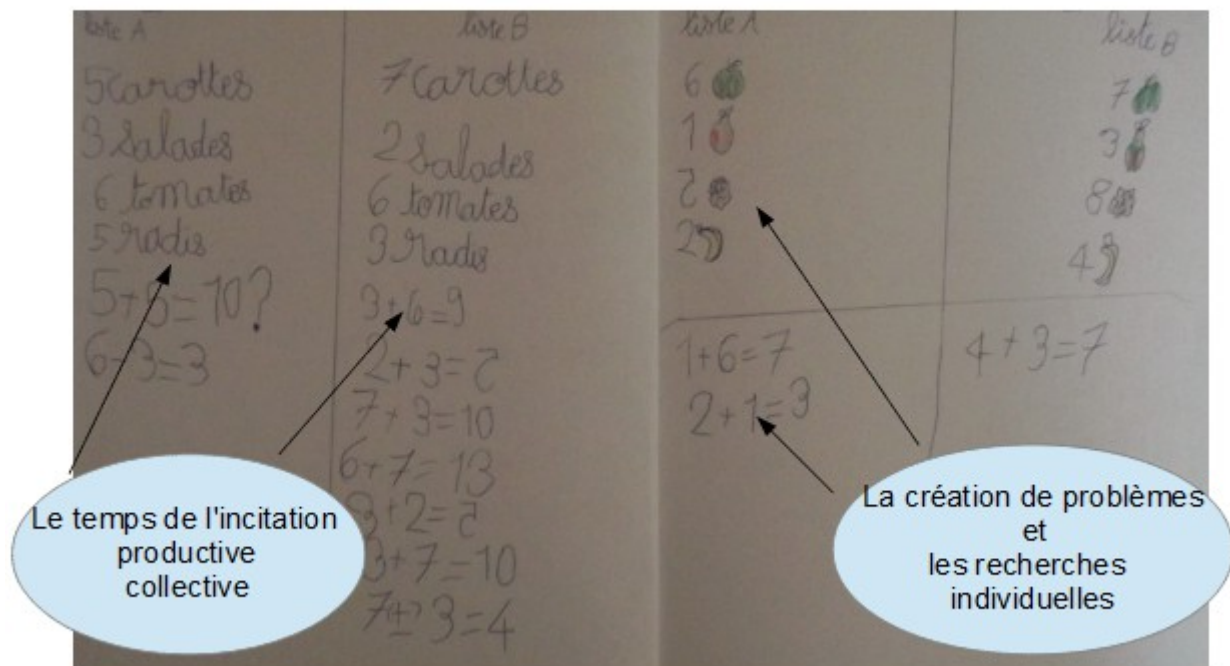 liste A
5 carottes
3 salades
6 tomates
5 radis
5+5=10?
6-3=3
liste B
7 carottes
2 salades
6 tomates
3 radis
3+6=9
2+3=5
7+3=10
6+7=13
3+2=5
3+7=10
3=4
liste A
6
1
5
2
1+6=7
2+1=3
liste B
7
3
8
4
4+3=7
Le temps de l'incitation
productive
collective
La création de problèmes
et
les recherches
individuelles